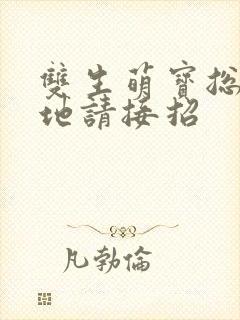 雙生萌寶總
地請接招
凡勃倫